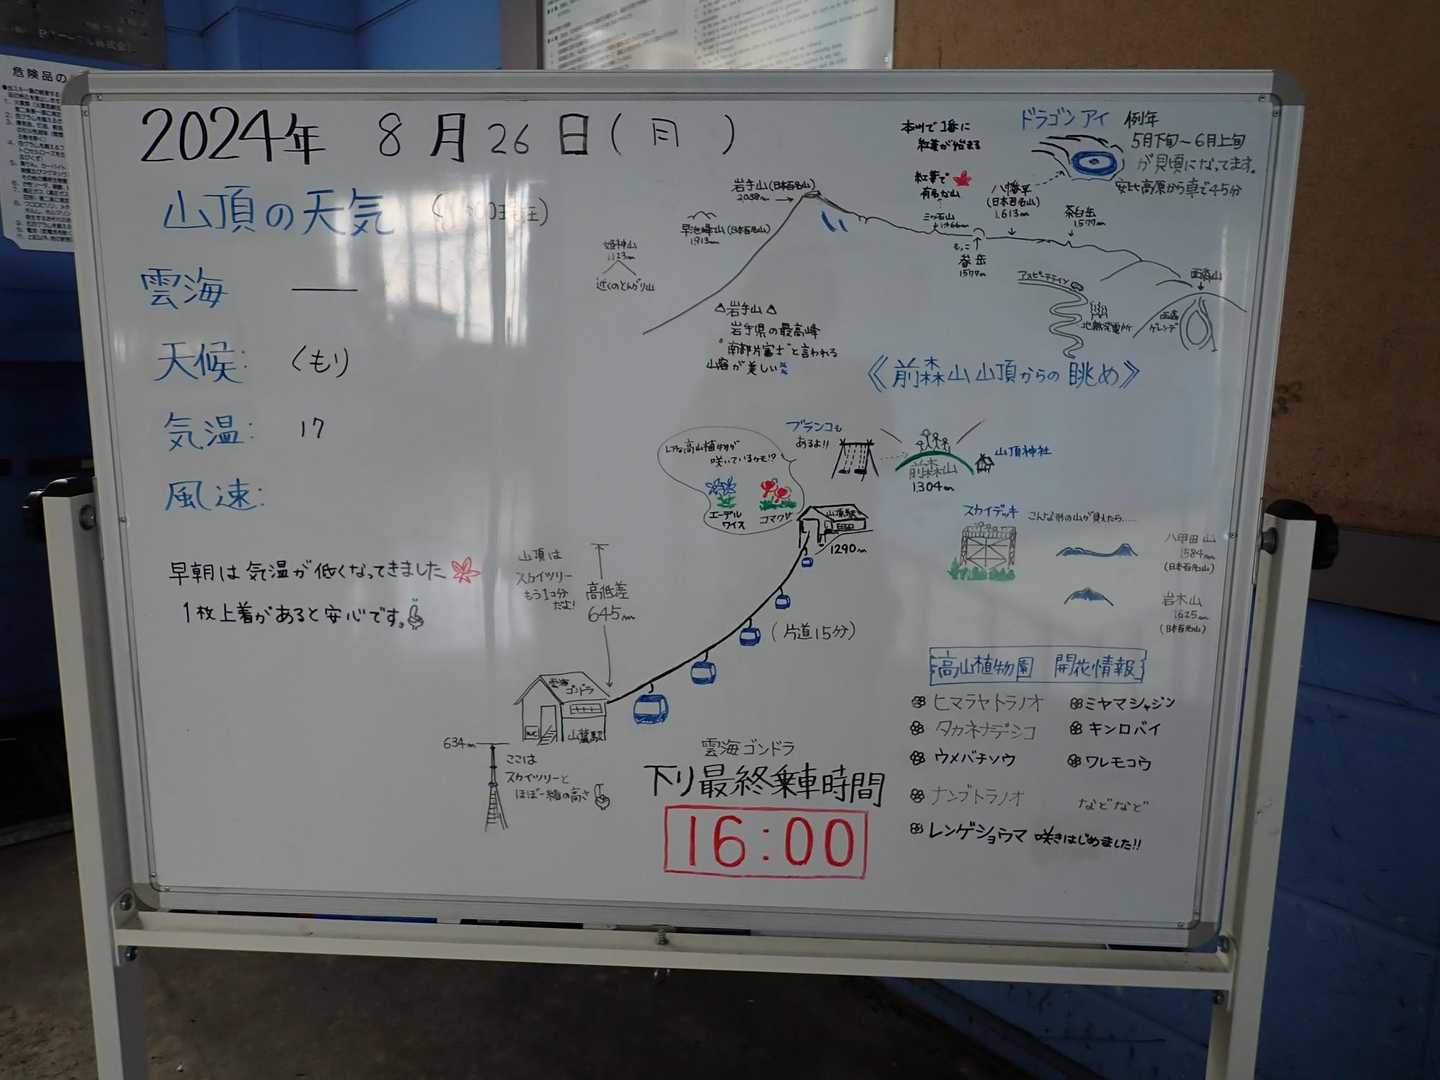 危険品の
2024年 8月26日(月)
山頂の天気
雲海 —
天候: くもり
気温: 17
風速:
早朝は気温が低くなってきました
1枚上着があると安心です。
本州で1番に
紅葉が始まる
紅葉で
有名な山
ドラゴンアイ 例年
5月下旬～6月上旬
が見頃になってます。
安比高原から車で45分
岩手山(日本百名山)
2038m
早池峰山(日本百名山)
1913m
姫神山
1123m
近くのとんがり山
三ッ石山
八幡平
(日本百名山)
1613m
茶臼岳
1578m
もっこ
岳
アスピーテライン
地熱発電所
△岩手山△
岩手県の最高峰
"南部片富士"と言われる
山容が美しい
《前森山山頂からの眺め》
ブランコも
あるよ!!
前森山
1304m
山頂神社
レアな高山植物が
咲いているかも!?
エーデル
ワイス
コマクサ
山頂駅
1290m
スカイデッキ
こんな形の山が見えたら……
八甲田山
1584m
(日本百名山)
岩木山
1625m
(日本百名山)
山頂は
スカイツリー
もう1コ分
だよ!
高低差
645m
(片道15分)
雲海
ゴンドラ
山麓駅
634m
ここは
スカイツリーと
ほぼ一緒の高さ
雲海ゴンドラ
下り最終乗車時間
16:00
高山植物園 開花情報
ヒマラヤトラノオ
ミヤマシャジン
タカネナデシコ
キンロバイ
ウメバチソウ
ワレモコウ
ナンブトラノオ
などなど
レンゲショウマ 咲きはじめました!!